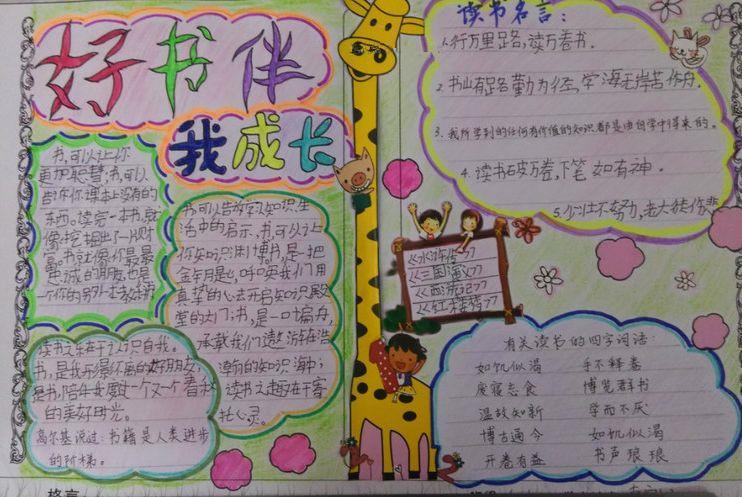 好书伴
我成长
书,可以让你
更加聪慧,书,可以
告诉你课本上没有的
东西。读完一本书,就
像挖掘出了一片财
富。书就像你最最
忠诚的朋友,也是
一个你的另外
读书之乐在于让认识自我。
书,是我形影不离的好朋友,
是书,陪伴我度过一个又一个春秋
的美好时光。
高尔基说过:书籍是人类进步
的阶梯。
书可以告诉我知识,生
活中的启示,书可以让
你知识渊博。书,是一把
金钥匙,呼唤我们用
真挚的心去开启知识殿
堂的大门;书,是一叶扁舟,
承载我们遨游在浩
瀚的知识海中;
读书之趣在于寄
托心灵。
读书名言:
1.行万里路,读万卷书.
2.书山有路勤为径,学海无崖苦作舟.
3.我所学到的任何有价值的知识都是由自学中得来的。
4.读书破万卷,下笔如有神.
5.少壮不努力,老大徒伤悲
《水浒传》
《三国演义》
《西游记》
《红楼梦》
有关读书的四字词语:
如饥似渴 手不释卷
废寝忘食 博览群书
温故知新 学而不厌
博古通今 如饥似渴
开卷有益 书声琅琅